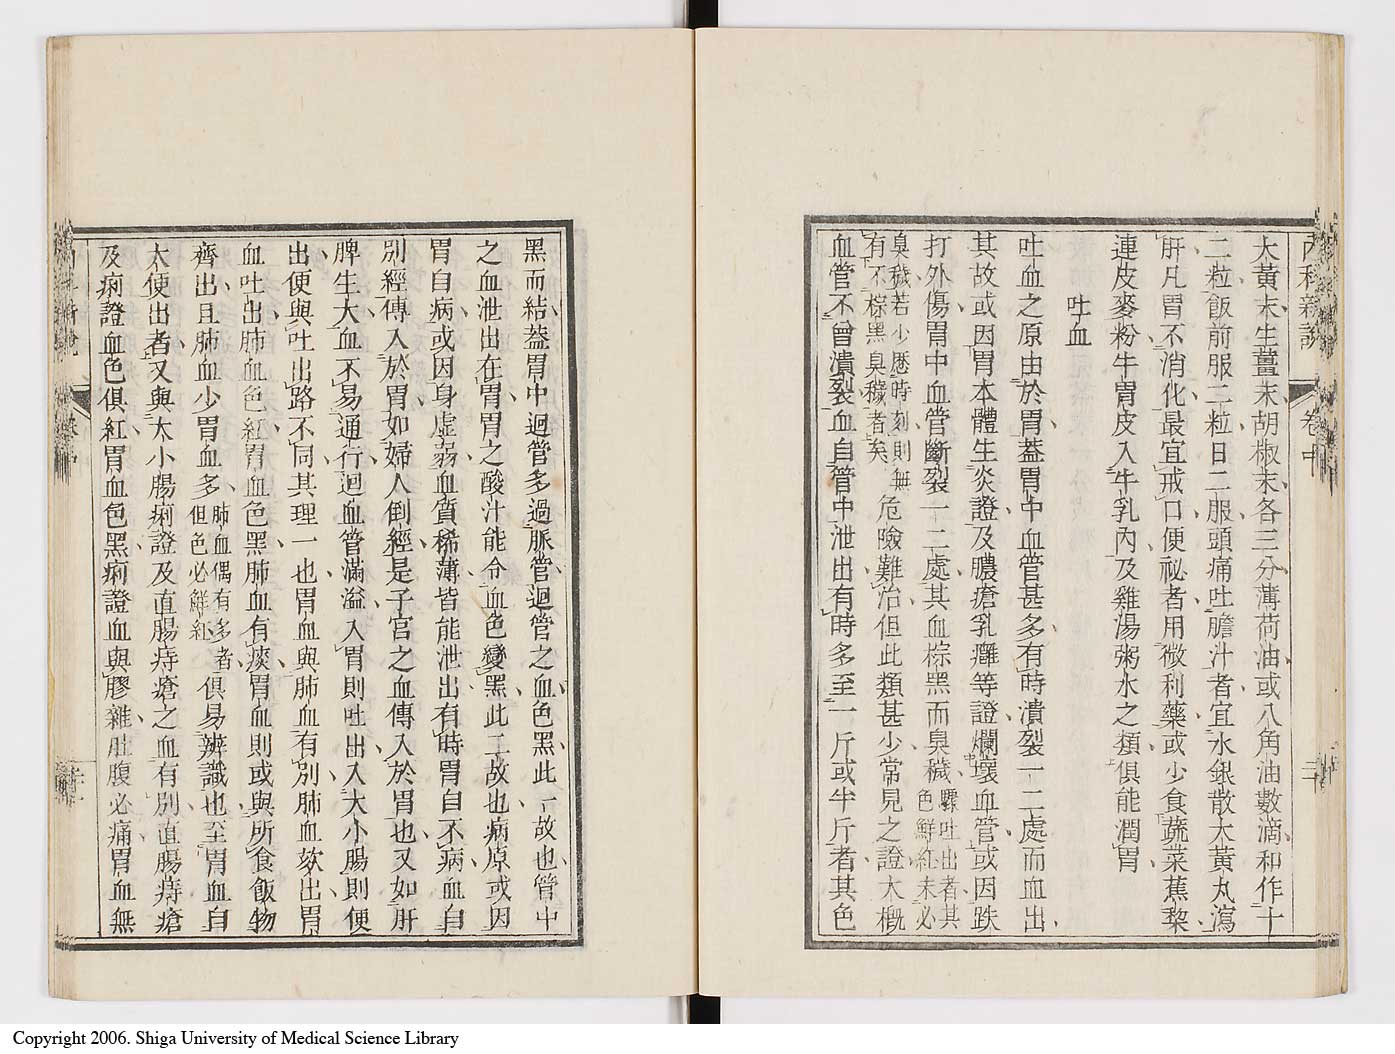 內科新說 卷中 三十
大黃末生薑末胡椒末各三分薄荷油或八角油數滴和作十
二粒飯前服二粒日二服頭痛吐膽汁者宜水銀散大黃丸瀉
肝凡胃不消化最宜戒口便祕者用微利藥或少食蔬菜蕉黎
連皮麥粉牛胃皮入牛乳內及雞湯粥水之類俱能潤胃
吐血
吐血之原由於胃蓋胃中血管甚多有時潰裂一二處而血出
其故或因胃本體生炎證及膿瘡乳癰等證爛壞血管或因跌
打外傷胃中血管斷裂一二處其血棕黑而臭穢驟吐出者其色鮮紅未必
臭穢若少歷時刻則無有不棕黑臭穢者矣危險難治但此類甚少常見之證大概
血管不曾潰裂血自管中泄出有時多至一斤或半斤者其色
黑而結蓋胃中迴管多過脈管迴管之血色黑此一故也管中
之血泄出在胃胃之酸汁能令血色變黑此二故也病原或因
胃自病或因身虛弱血質稀薄皆能泄出有時胃自不病血自
別經傳入於胃如婦人倒經是子宮之血傳入於胃也又如肝
脾生大血不易通行迴血管滿溢入胃則吐出入大小腸則便
出便與吐出路不同其理一也胃血與肺血有別肺血欬出胃
血吐出肺血色紅胃血色黑肺血有痰胃血則或與所食飯物
齊出且肺血少胃血多肺血偶有多者但色必鮮紅俱易辨識也至胃血自
大便出者又與大小腸痢證及直腸痔瘡之血有別直腸痔瘡
及痢證血色俱紅胃血色黑痢證血與膠雜肚腹必痛胃血無
卷中
Copyright 2006. Shiga University of Medical Science Library